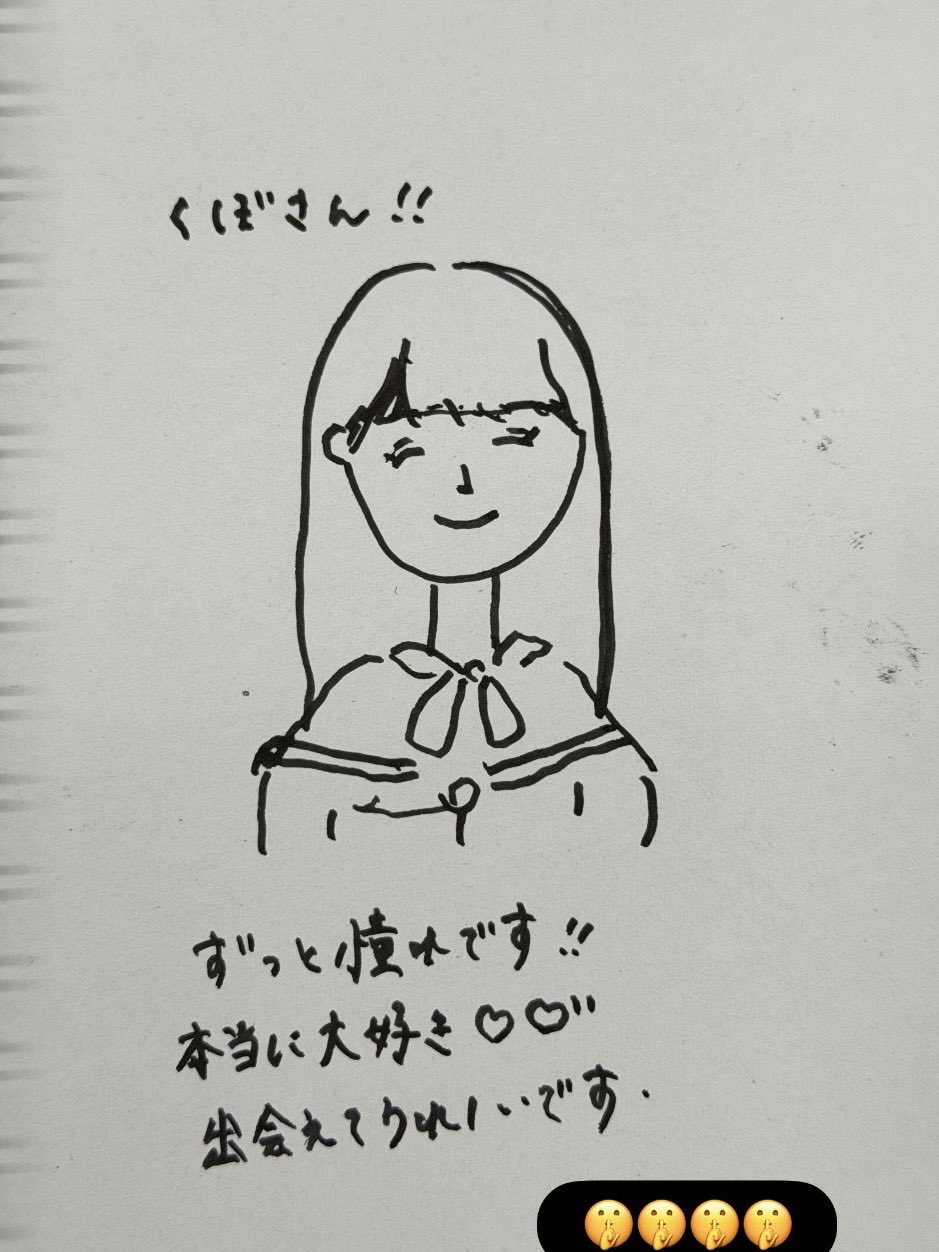 くぼさん!!
ずっと憧れです!!
本当に大好き♡♡"
出会えてうれしいです.